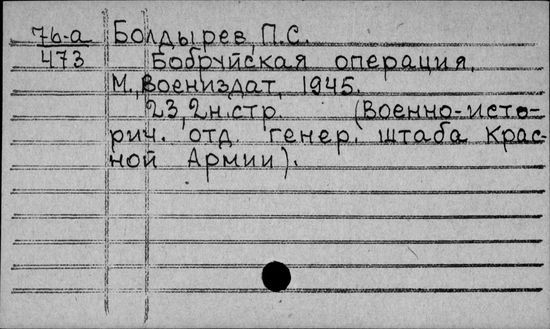 7б-а Болдырев, П.С.
473 Бобруйская операция.
М., Воениздат, 1945.
23, 2н.стр. (Военно-исто-
рич. отд. генер. штаба Крас-
ной Армии).